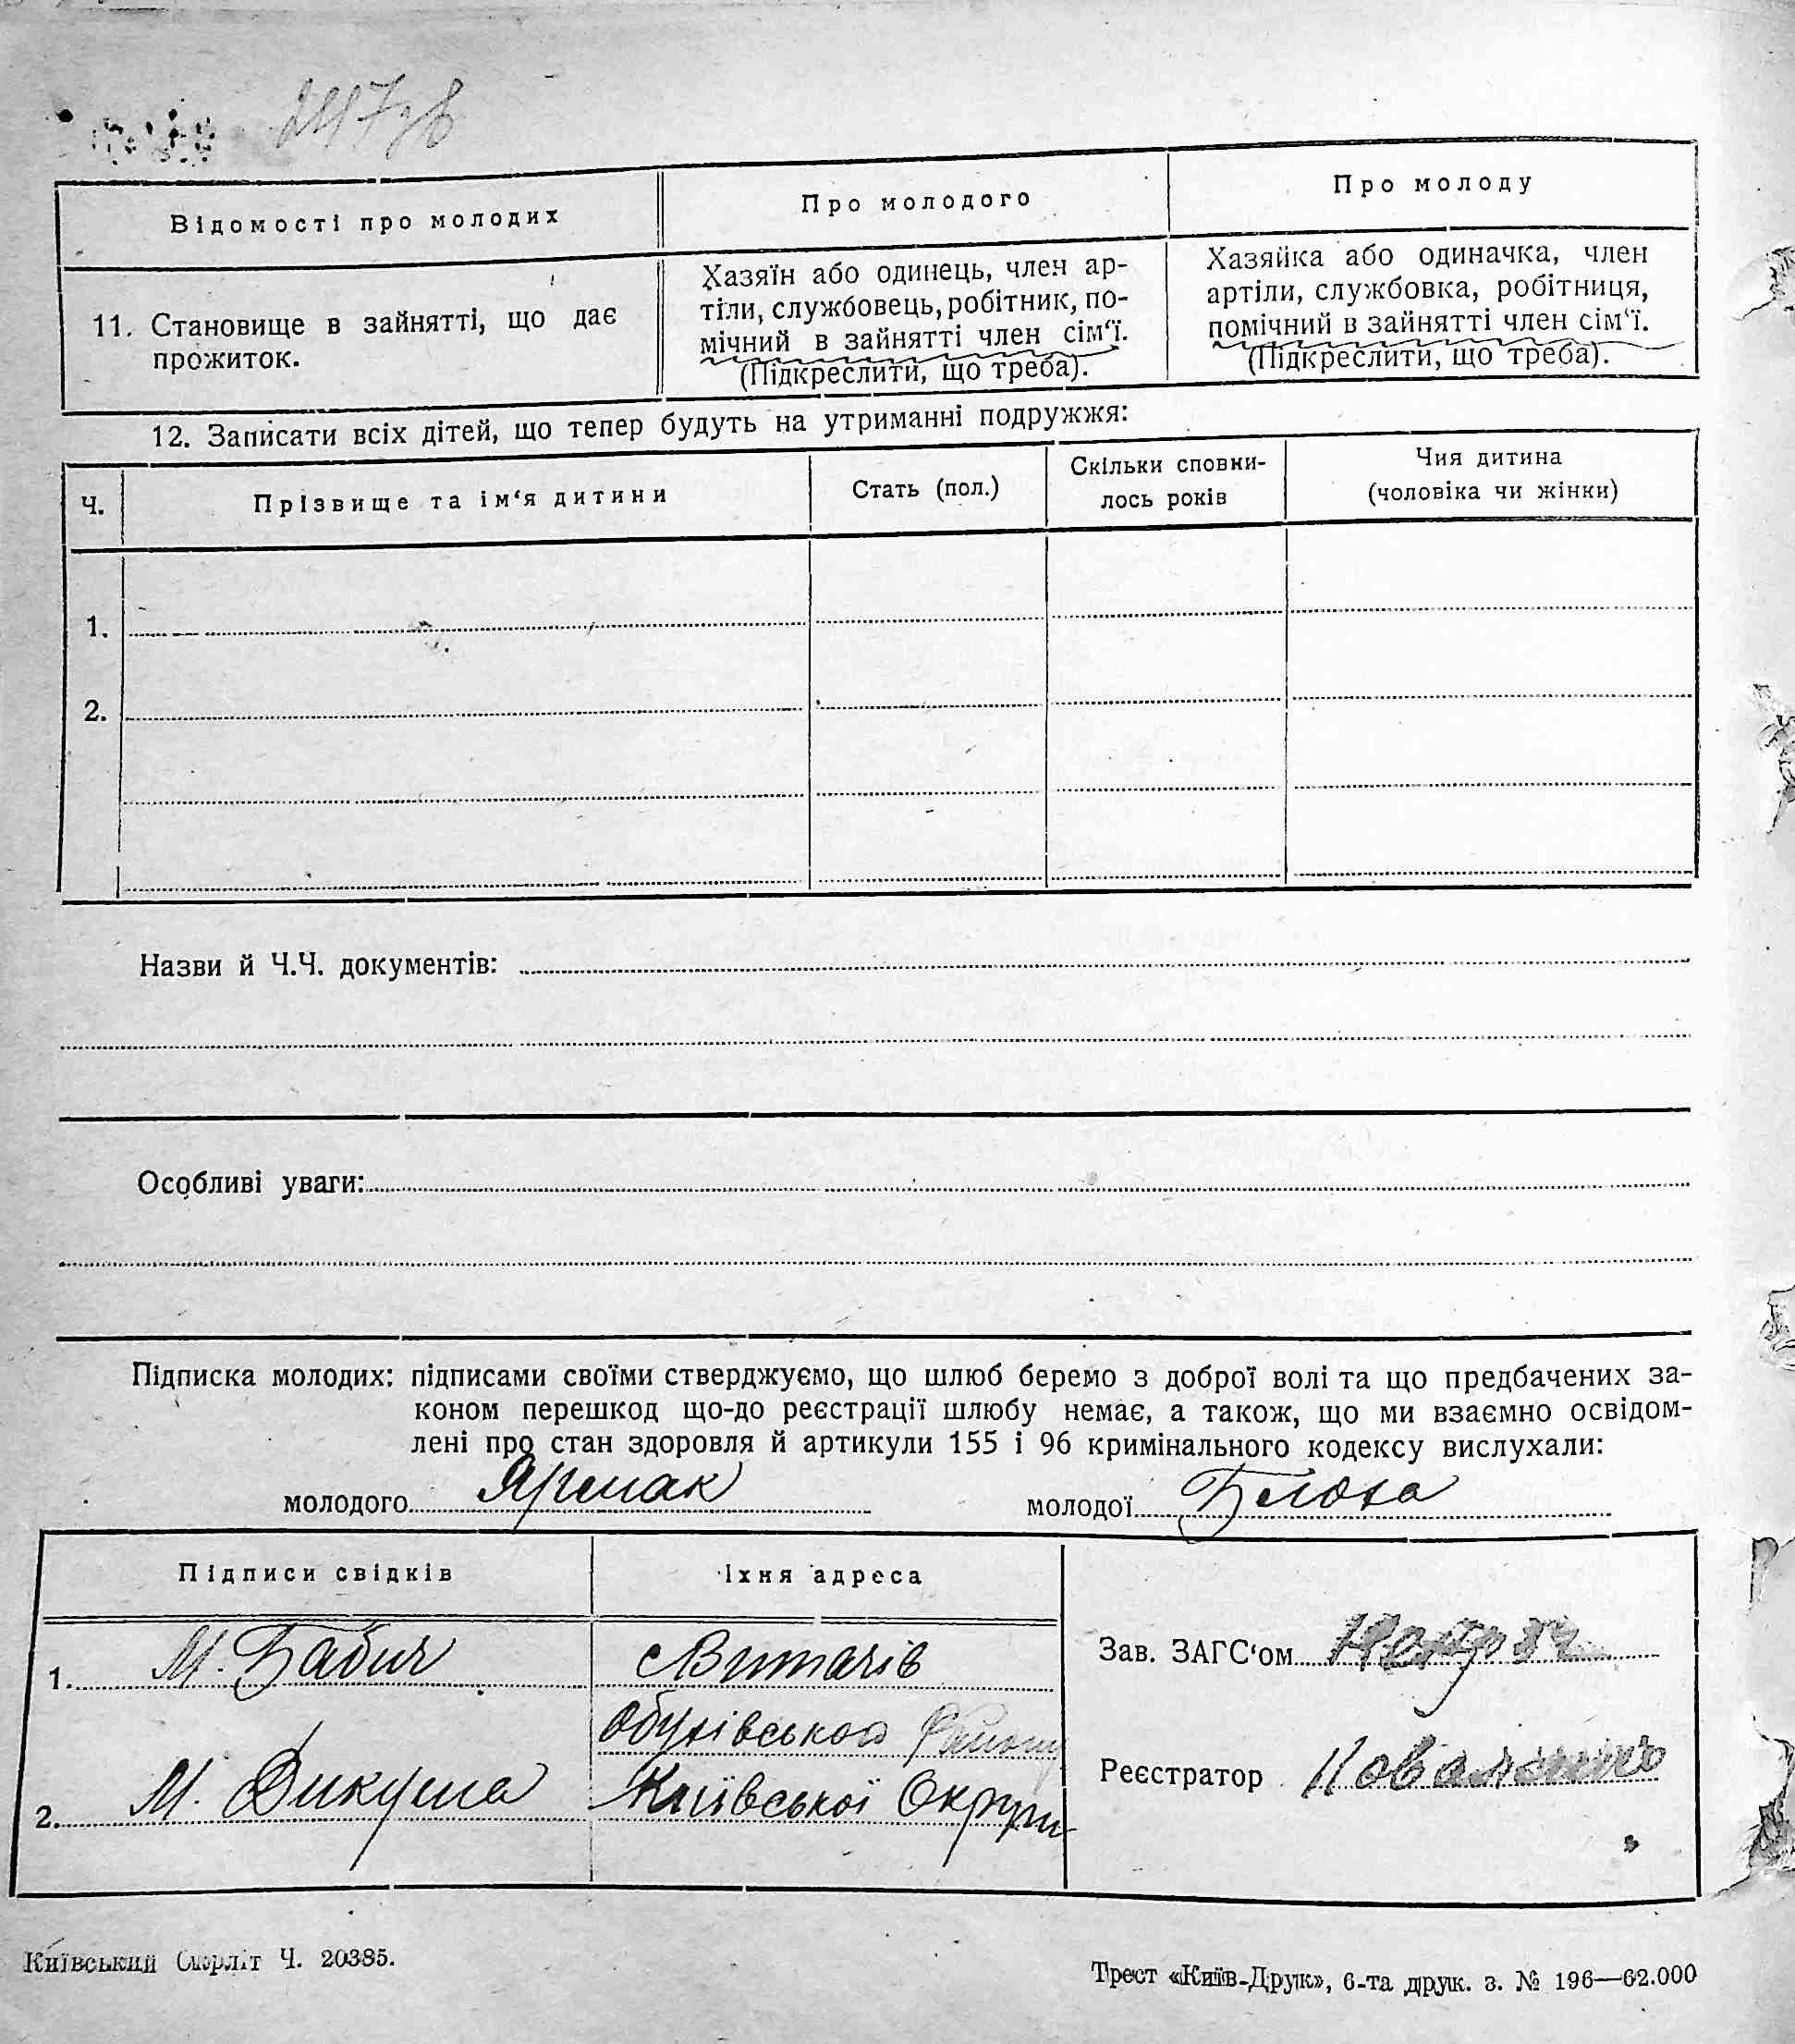 247зв
Відомості про молодих
Про молодого
Про молоду
11. Становище в зайнятті, що дає
прожиток.
Хазяїн або одинець, член ар-
тіли, службовець, робітник, по-
мічний в зайнятті член сім'ї.
(Підкреслити, що треба).
Хазяйка або одиначка, член
артіли, службовка, робітниця,
помічний в зайнятті член сім'ї.
(Підкреслити, що треба).
12. Записати всіх дітей, що тепер будуть на утриманні подружжя:
Ч.
Прізвище та ім'я дитини
Стать (пол.)
Скільки сповни-
лось років
Чия дитина
(чоловіка чи жінки)
1.
2.
Назви й Ч.Ч. документів:
Особливі уваги:
Підписка молодих: підписами своїми стверджуємо, що шлюб беремо з доброї волі та що предбачених за-
коном перешкод що-до реєстрації шлюбу немає, а також, що ми взаємно освідом-
лені про стан здоровля й артикули 155 і 96 кримінального кодексу вислухали:
молодого Яремак
молодої
Підписи свідків
Їхня адреса
1. М. Бабич
с Витачів
Обухівського Району
2. М. Дикуша
Київської Округи
Зав. ЗАГС'ом
Реєстратор Коваленко
Київський Окрліт Ч. 20385.
Трест «Київ-Друк», 6-та друк. з. № 196—62.000